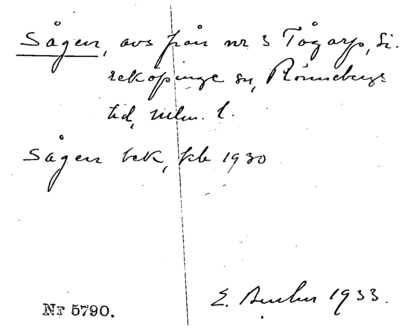 Sågen, avs från nr 3 Tågarp, Si-
rekøpinge sn, Rönnebergs
hd, mlm. l.
Sågen bek, kb 1930
Nr 5790.
E. 1933.